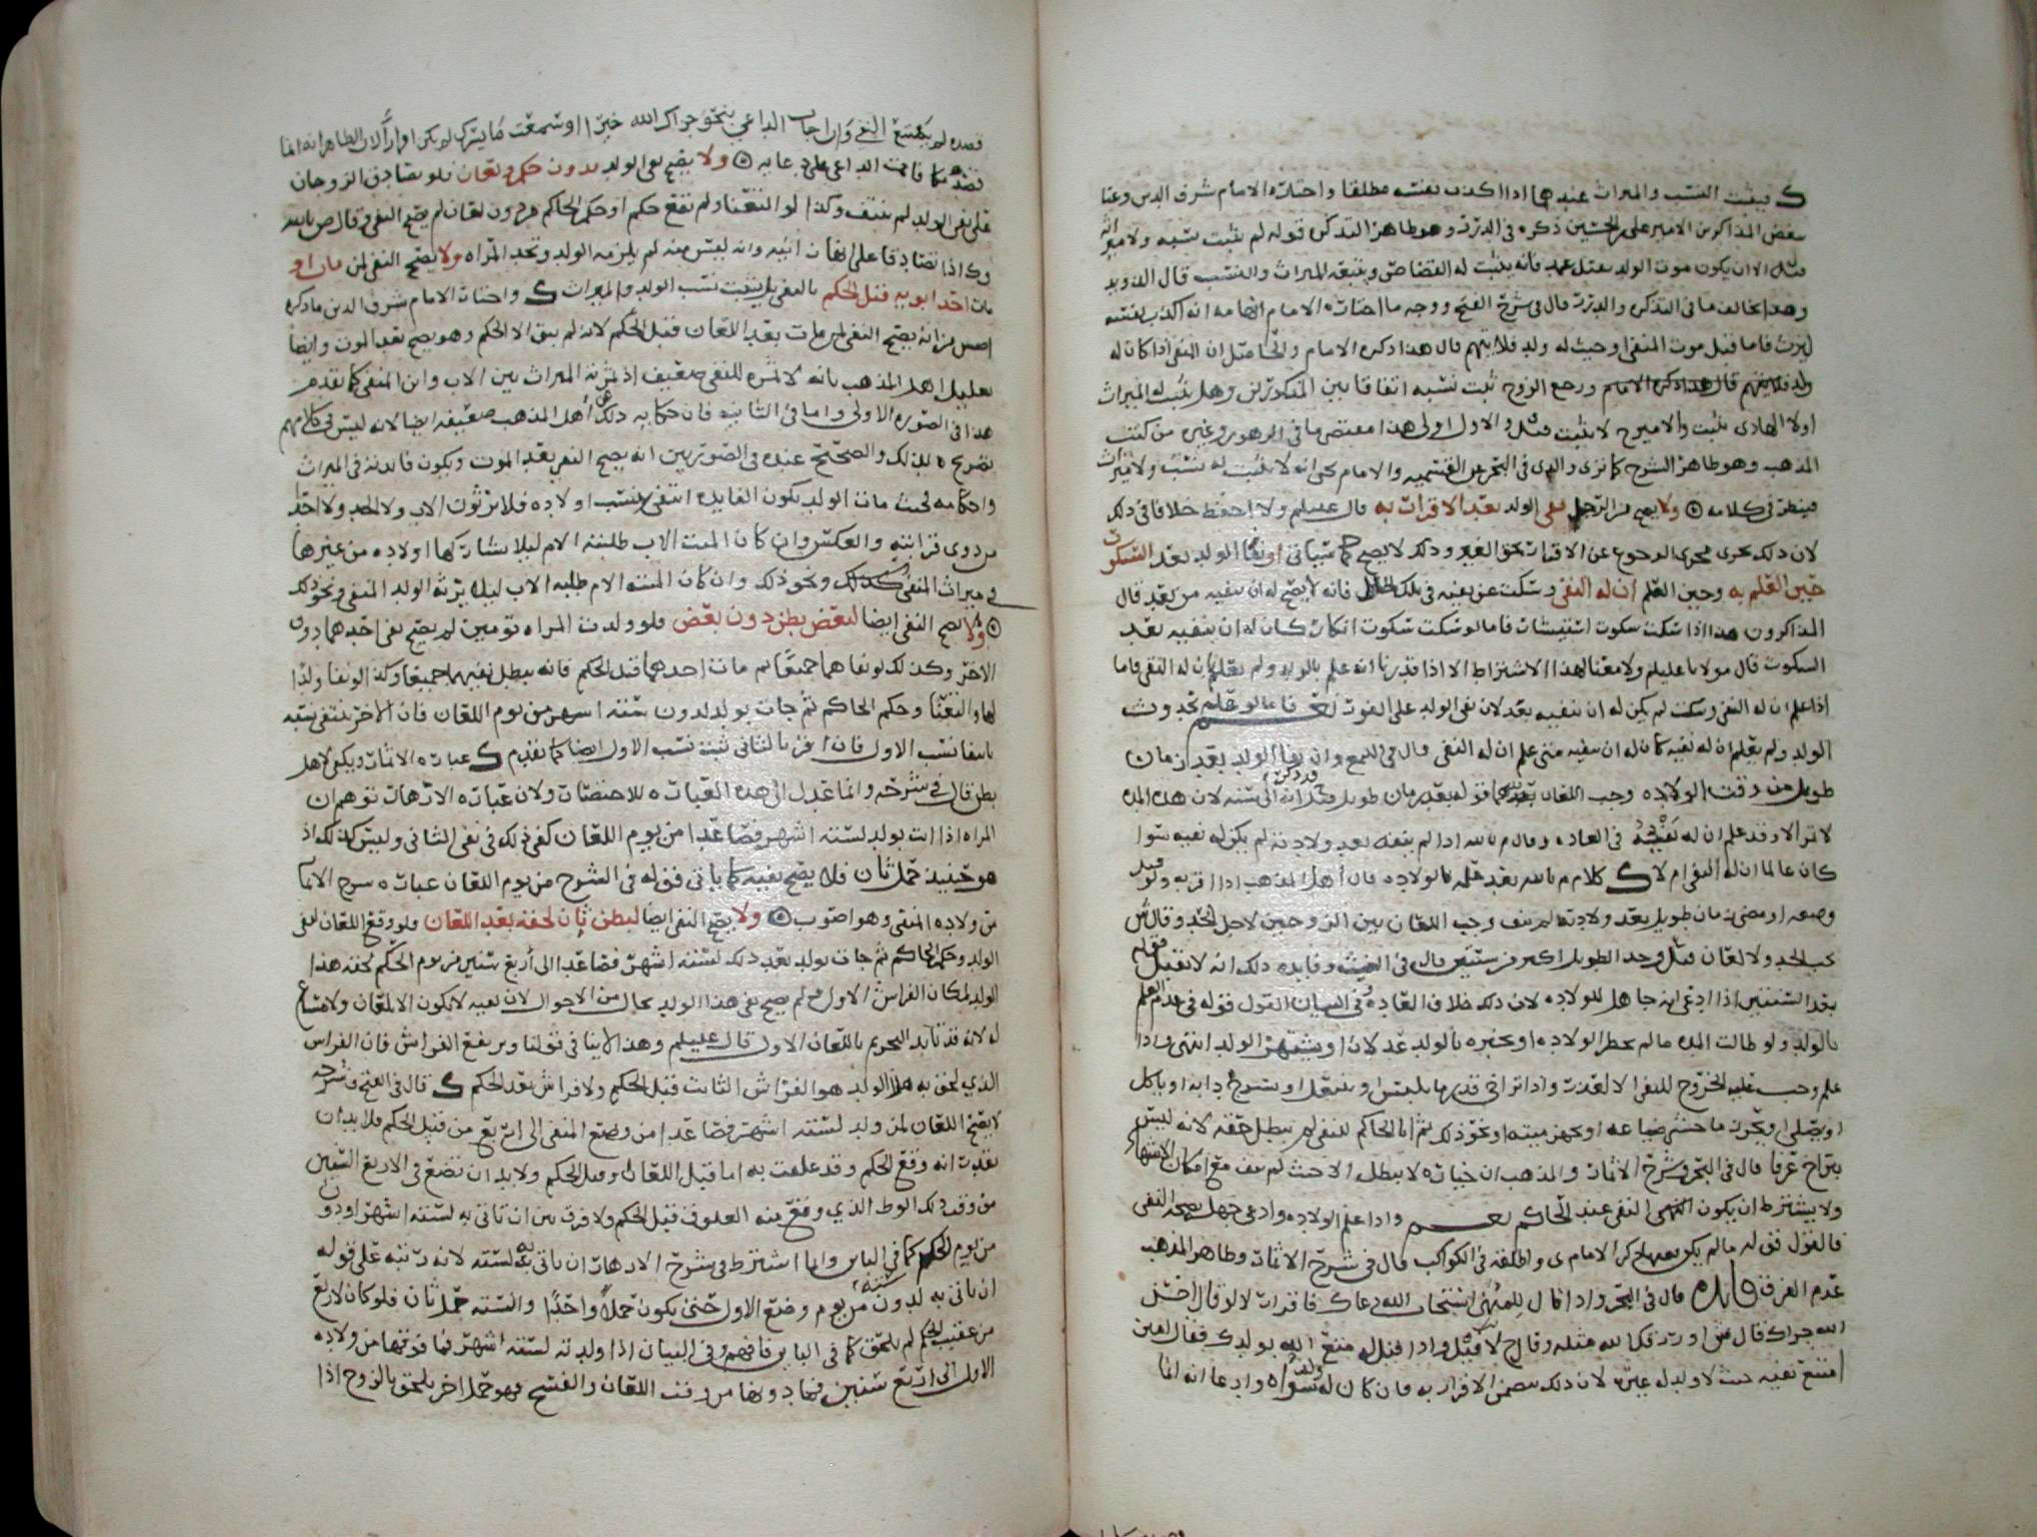 فيثبت النسب والميراث عندهما اذا اكذب نفسه مطلقا واختاره الامام شرف الدين وعنا
بعض المذاكرين الامير علي بن الحسين ذكره في الدرر وهو ظاهر التذكره قوله لم يثبت نسبه ولا ميراثه
قيل الا ان يكون موت الولد بقتل عمد فانه يثبت له القصاص ويتبعه الميراث والنسب قال الدويد
وهذا يخالف ما في التذكره والدرر قال في شرح الفتح ووجه ما اختاره الامام انه اكذب نفسه
ليرث فاما قبل موت المنفي او حيث له ولد فلا يتهم قال هذا ذكره الامام والحاصل ان المنفي اذا كان له
ولد ورجع الزوج ثبت نسبه اتفاقا بين المذكورين وهل يثبت له الميراث
اولا الهادي يثبت والامير ح لا يثبت قيل والاول اولى هذا مقتضى ما في الزهور وغيره من كتب
المذهب وهو ظاهر الشرح كما ترى والذي في البحر عن القسميه والامام يحيى انه لا يثبت له نسب ولا ميراث
فينظر في كلامه ولا يصح من الرجل نفي الولد بعد الاقرار به قال عليلم ولا احفظ خلافا في ذلك
لان ذلك يجري مجرى الرجوع عن الاقرار بحق الغير وذلك لا يصح كما سيأتي او نفا الولد بعد السكوت
حين العلم به وحين العلم ان له النفي وسكت عن نفيه في تلك الحال فانه لا يصح له ان ينفيه من بعد قال
المذاكرون هذا اذا سكت سكوت استبشار فاما لو سكت سكوت انكار كان له ان ينفيه بعد
السكوت قال مولانا عليلم ولا معنا لهذا الاشتراط الا اذا قدرنا انه علم بالولد ولم يعلم ان له النفي فاما
اذا علم ان له النفي وسكت لم يكن له ان ينفيه بعد لان نفي الولد على الفور نعم فاما لو علم بحدوث
الولد ولم يعلم ان له نفيه كان له ان ينفيه متى علم ان له النفي قال في اللمع وان نفا الولد بعد زمان
طويل من وقت الولاده وجب اللعان قوله بعد زمان طويل قيل الى سنه لان هذه المده
لا تمر الا وقد علم ان له نفيه في العاده وقال م بالله اذا لم ينفه بعد ولادته لم يكن له نفيه سوا
كان عالما ان له النفي ام لا كلام م بالله بعد علمه بالولاده قال اهل المذهب اذا اقر به ولو قبل
وضعه او مضى زمان طويل بعد ولادته لم ينف وجب اللعان بين الزوجين لاجل الحد وقال ش
يجب الحد ولا لعان قيل وحد الطويل اكثر من سنتين قال في الغيث وفايدة ذلك انه لا يقبل قوله
بعد السنتين اذا ادعى انه جاهل للولاده لان ذلك خلاف العاده وفي البيان القول قوله في عدم العلم
بالولد ولو طالت المده ما لم يحضر الولاده او يخبره بالولد عدلان او يشتهر الولد انتهى واذا
علم وجب عليه الخروج للنفي الا لعذر واذا تراخى قدر ما يلبس او ينتعل او يسرج دابه او ياكل
او يصلي او يحرز ما خشي ضياعه او يجهز ميته او نحو ذلك ثم اتا الحاكم للنفي لم يبطل حقه لانه ليس
بتراخ عرفا قال في البحر وشرح الاثمار والمذهب ان خياره لا يبطل الا حيث لم ينف مع امكان الاشهاد
ولا يشترط ان يكون النفي عند الحاكم نعم واذا علم الولاده وادعى جهل صحة النفي
فالقول قوله ما لم يكن فقيها ذكره الامام ى واطلقه في الكواكب قال في شرح الاثمار وظاهر المذهب
عدم الفرق فايده قال في البحر واذا قال للمهنئ استجاب الله دعاك فاقرار لا لو قال احسن
الله جزاك قال ش او رزقك الله مثله وقال ح لا قيل واذا قيل له متع الله بولدك فقال امين
امتنع نفيه حيث لا ولد له غيره لان ذلك يتضمن الاقرار به فان كان له ولد سواه وادعا انه انما
قصده لم يمتنع النفي وان اجاب الداعي بنحو جزاك الله خيرا او سمعت ما يسرك لم يكن اقرارا لان الظاهر انه انما
قصد مكافات الداعي على دعايه ولا يصح نفي الولد بدون حكم ولعان فلو تصادق الزوجان
على نفي الولد لم ينتف وكذا لو التعنا ولم يقع حكم او حكم الحاكم من دون لعان لم يصح النفي وقال ص بالله
وك اذا تصادقا على انها زانيه وانه ليس منه لم يلزمه الولد وتحد المراه ولا يصح النفي لمن مات او
مات احد ابويه قبل الحكم بالنفي بل يثبت نسب الولد والميراث واختار الامام شرف الدين ما ذكره
انه يصح النفي لمن مات بعد اللعان قبل الحكم لانه لم يبق الا الحكم وهو يصح بعد الموت وايضا
تعليل اهل المذهب بانه لا ثمره للنفي ضعيف اذ ثمرته الميراث بين الاب وابن المنفي كما تقدم
هذا في الصوره الاولى واما في الثانيه فان حكايه ذلك عن اهل المذهب ضعيفه ايضا لانه ليس في كلامهم
تصريح بذلك والصحيح عنده في الصورتين انه يصح النفي بعد الموت ويكون فايدته في الميراث
واحكامه فحيث مات الولد يكون الفايده انتفى نسب اولاده فلا يرثون الاب ولا الجد ولا احدا
من ذوي قرابته والعكس وان كان الميت الاب طلبته الام ليلا يشاركها اولاده من غيرها
في ميراث المنفي ونحو ذلك وان كان الميته الام طلبه الاب ليلا يرثه الولد المنفي ونحو ذلك
ولا يصح النفي ايضا لبعض بطن دون بعض فلو ولدت المراه تومين لم يصح نفي احدهما دون
الاخر وكذلك لو نفاهما جميعا ثم مات احدهما قبل الحكم فانه يبطل نفيهما جميعا وكذا لو نفا ولدا
لها والتعنا وحكم الحاكم ثم جات بولد لدون سته اشهر من يوم اللعان فان الاخر ينتفي نسبه
بانتفا نسب الاول فان اقر بالثاني ثبت نسب الاول ايضا كما تقدم عباره الاثمار ويكفي لاهل
بطن قال في شرحه وانما عدل الى هذه العباره للاختصار ولان عباره الازهار توهم ان
المراه اذا اتت بولد لسته اشهر فصاعدا من يوم اللعان كفى ذلك في نفي الثاني وليس كذلك اذ
هو حينيذ حمل ثان فلا يصح نفيه كما ياتي قوله في الشرح من يوم اللعان عباره شرح الاثمار
من ولاده المنفي وهو اصوب ولا يصح النفي ايضا لبطن ثان لحقه بعد اللعان ولو وقع اللعان لنفي
الولد وحكم الحاكم ثم جات بولد بعد ذلك لسته اشهر فصاعدا الى اربع سنين من يوم الحكم لحقه هذا
الولد لمكان الفراش الاول ثم لم يصح نفي هذا الولد بحال من الاحوال لان نفيه لا يكون الا بلعان ولا مساغ
له لانه قد تابد التحريم باللعان الاول قال عليلم وهذا لا ينافي قولنا ويرتفع الفراش فان الفراش
الذي لحق به هذا الولد هو الفراش الثابت قبل الحكم ولا فراش بعد الحكم قال في الفتح وشرحه
لا يصح اللعان لمن ولد لسته اشهر فصاعدا من وضع المنفي الى اربع من قبل الحكم فلا بد ان
بعد انه وقع الحكم وقد علقت به اما قبل اللعان او قبل الحكم ولا بد ان تضع في الاربع السنين
من وقت ذلك الوطء الذي وقع منه العلوق قبل الحكم ولا فرق بين ان تاتي به لسته اشهر او دون
من يوم الحكم كما في الباب وانما اشترط في شرح الازهار ان ياتي به لسته لانه رتبه على قوله
ان ياتي به لدون سته من يوم وضع الاول حتى يكون حملا واحدا والسته حمل ثان فلو كان لاربع
من عقيب الحكم لم يلحق كما في الباب فافهم وفي البيان اذا ولدته لسته اشهر فما فوقها من ولاده
الاول الى اربع سنين فما دونها من وقت اللعان والفسخ فهو حمل اخر يلحق بالزوج اذا